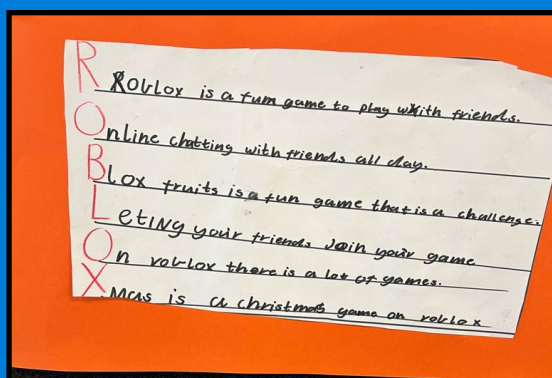 R Roblox is a fum game to play whith friends.
Online chatting with friends all day.
Blox fruits is a fun game that is a challenge.
Leting your friends Join your game
On roblox there is a lot of games.
Xmas is a christmas game on roblox